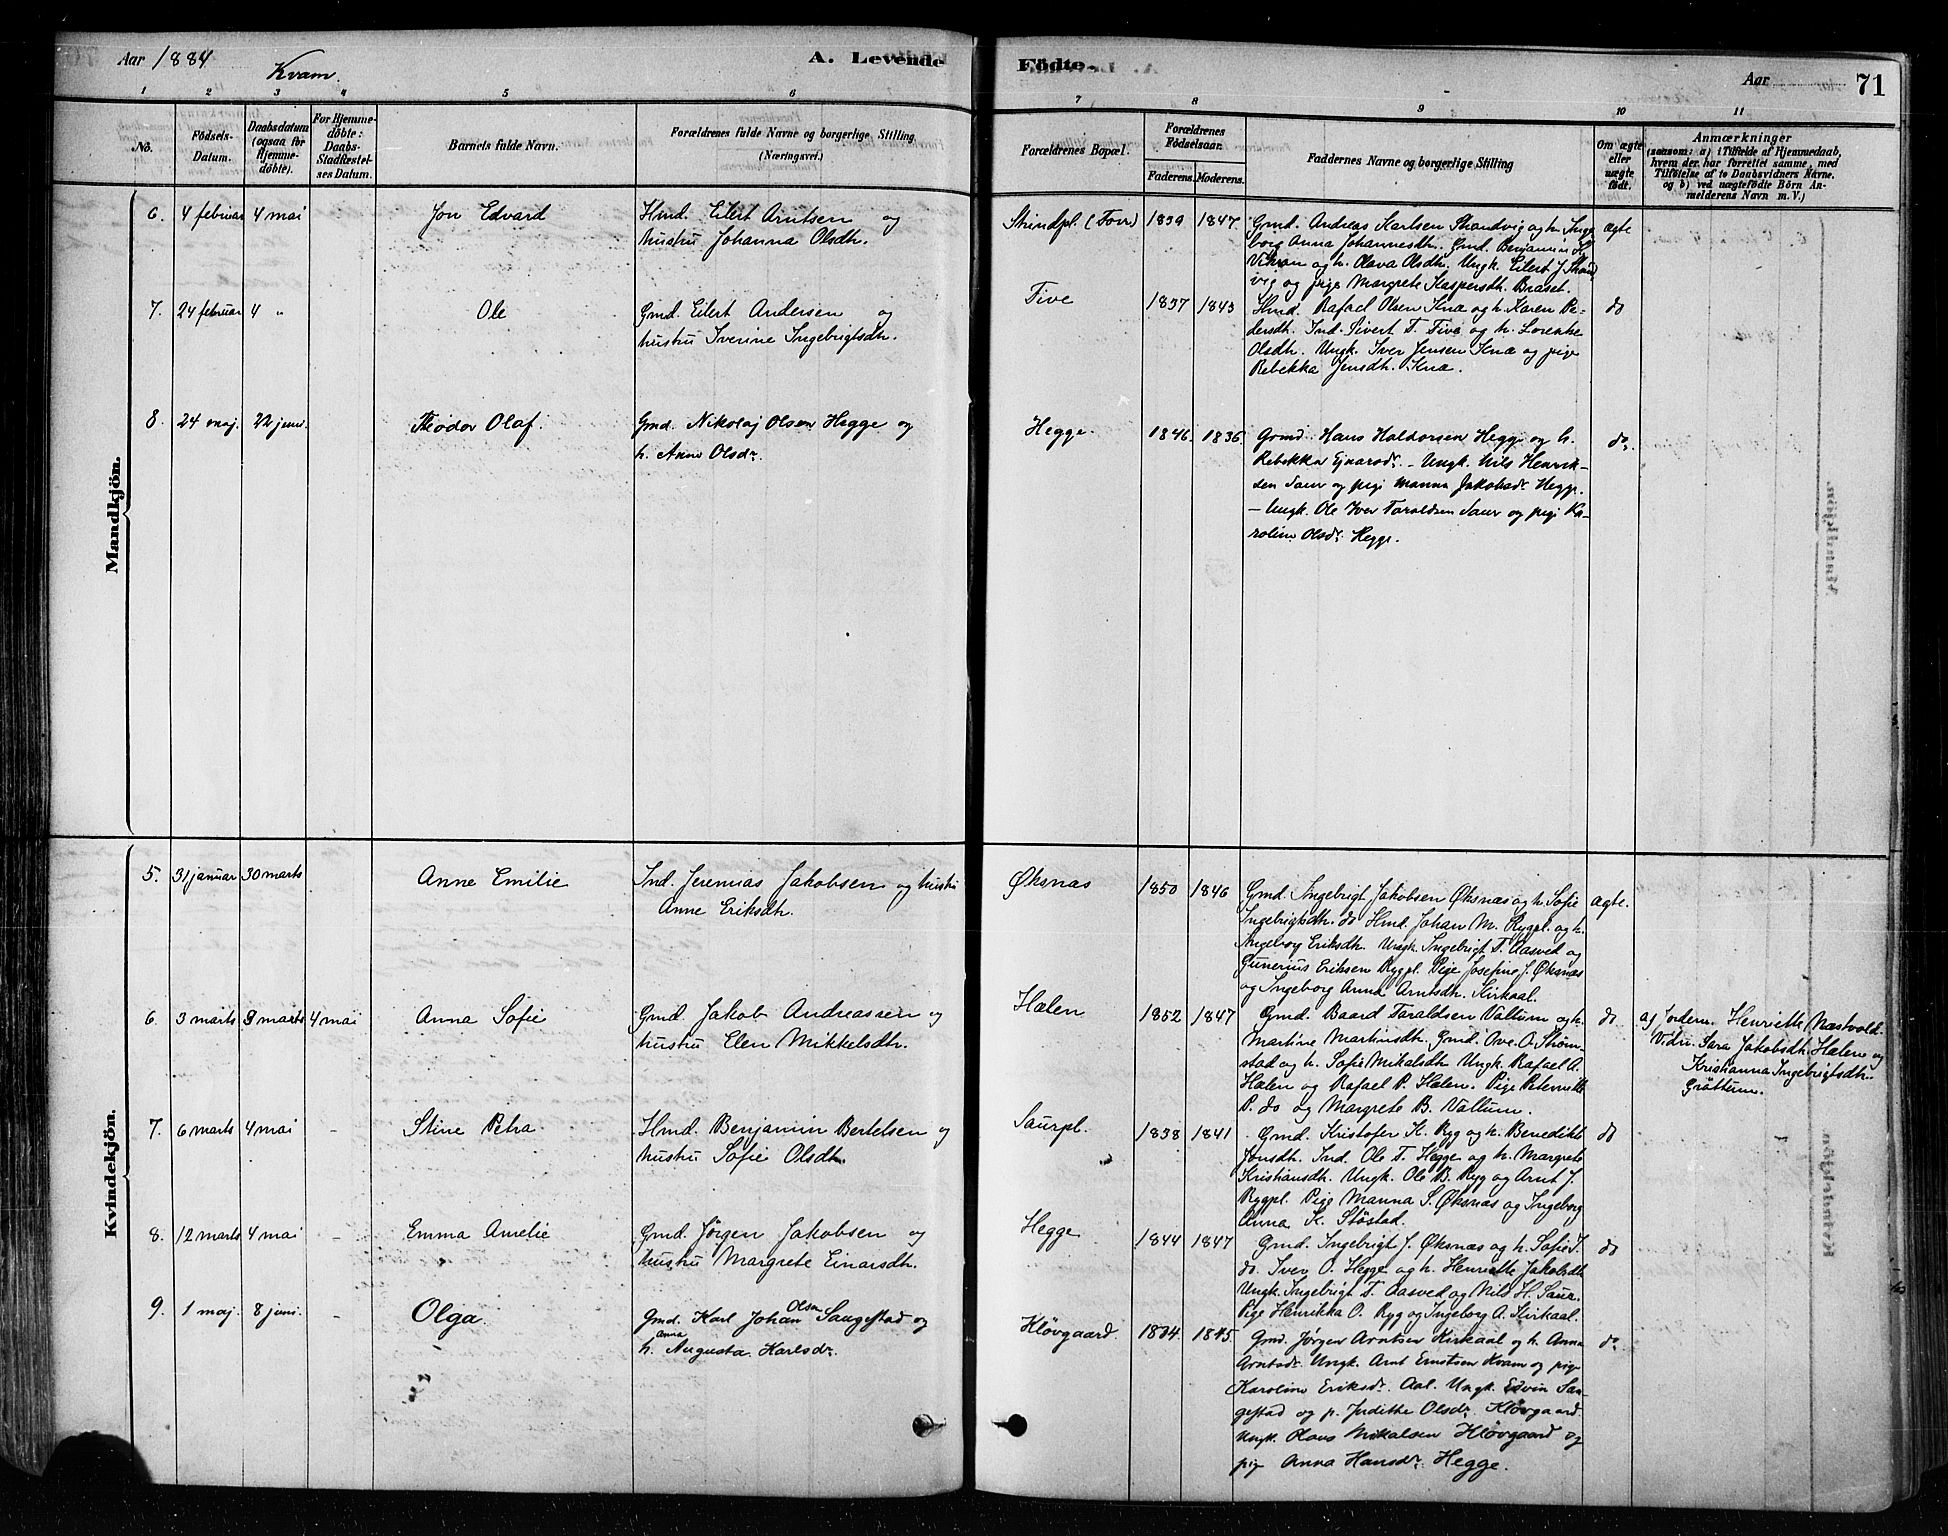 Aar 1884
Kvam.
A. Levende
Födte.
Aar
71
1 2 3 4 5 6 7 8 9 10 11
No.
Födsels-
Datum.
Daabsdatum
(ogsaa for
Hjemme-
döbte).
For Hjemme-
döbte:
Daabs-
Stadfæstel-
ses Datum.
Barnets fulde Navn.
Forældrenes fulde Navne og borgerlige Stilling
(Næringsvei.)
Forældrenes Bopæl.
Forældrenes
Födselsaar.
Faderens. Moderens.
Faddernes Navne og borgerlige Stilling
Om ægte
eller
uægte
födt.
Anmærkninger
(saasom: a) i Tilfælde af Hjemmedaab,
hvem der har forrettet samme, med
Tilföielse af to Daabsvidners Navne,
og b) ved uægtefödte Börn An-
melderens Navn m. V.)
Mandkjön.
6. 4 februar 4 mai
Jon Edvard
Hmd. Eilert Arntsen og
hustru Johanna Olsdh.
Strindpl. (Forr)
1839 1847
Gmd. Andreas Karlsen Strandvig og h. Inge
borg Anna Johannesdh. Gmd. Benjamin H.
Vikran og h. Olava Olsdh. Ungk. Eilert J. Strand
vig og pige Margrete Kaspersdh. Braset.
ægte
7. 24 februar 4 "
Ole
Gmd. Eilert Andersen og
hustru Iverine Ingebrigtsdh.
Five
1837 1843
Hmd. Rafael Olsen Knæ og h. Karen Pe-
dersdh. Ind. Sivert T. Five og h. Lorentse
Olsdh. Ungk. Iver Jensen Knæ og pige
Rebekka Jensdh. Knæ.
do
8. 24 maj. 22 juni.
Theodor Olaf.
Gmd. Nikolaj Olsen Hegge og
h. Anne Olsdr.
Hegge.
1846. 1836.
Grmd. Hans Haldorsen Hegge og h.
Rebekka Ejnarsdr. – Ungk. Nils Henrik-
sen Saur og pige Manna Jakobsdr. Hegge.
– Ungk. Ole Iver Taraldsen Saur og pige Ka-
roline Olsdr. Hegge.
do.
Kvindekjön.
5. 31 januar 30 marts
Anne Emilie
Ind. Jeremias Jakobsen og hustru
Anne Eriksdh.
Øksnas
1850 1846
Gmd. Ingebrigt Jakobsen Øksnæs og h. Sofie
Ingebrigtsdh. do Hmd. Johan M. Rygpl. og h.
Ingeborg Eriksdh. Ungk. Ingebrigt T. Aasved og
Gunerius Eriksen Rygpl. Pige Josefine J. Øksnæs
og Ingeborg Anna Arntsdh. Kirkaal.
ægte.
6. 3 marts 9 marts 4 mai
Anna Sofie
Gmd. Jakob Andreassen og
hustru Elen Mikkelsdh.
Hælen
1852 1847
Gmd. Baard Taraldsen Vallum og h.
Martine Martinsdh. Gmd. Ove O. Strøm-
stad og h. Sofie Mikalsdh Ungk. Rafael A.
Hælen og Rafael P. Hælen. Pige Peternille
P. do og Margrete B. Vallum.
do
af Jordem. Henriette Næstvold.
Vidn. Sara Jakobsdh. Hælen og
Kristianna Ingebrigtsdh.
Gröttum.
7. 6 marts 4 mai -
Stine Petra
Hmd. Benjamin Bertelsen og
hustru Sofie Olsdh
Saurpl.
1838 1841
Gmd. Kristofer K. Ryg og h. Benedikte
Jonsdh. Ind. Ole T. Hegge og h. Margrete
Kristiansdh. Ungk. Ole B. Ryg og Arnt J.
Rygpl. Pige Manna S. Øksnæs og Ingeborg
Anna K. Stöstad.
do
8. 12 marts 4 mai -
Emma Amelie
Gmd. Jörgen Jakobsen og
hustru Margrete Einarsdh.
Hegge
1844 1847
Gmd. Ingebrigt J. Øksnæs og h. Sofie I.
do. Iver O. Hegge og h. Henriette Jakobsdh
Ungk. Ingebrigt T. Aasved og Nils H. Saur.
Pige Henrikka O. Ryg og Ingeborg A. Kirkaal.
do
9. 1 maj. 8 juni. -
Olga
Gmd. Karl Johan Olsen Saugestad og
h. Anna Augusta Karlsdr.
Klövgaard.
Gmd. Jørgen Arntsen Kirkaal og h. Anna
Arntsdr. Ungk. Arnt Ernstsen Kvam og pige
Karoline Eriksdr. Aal. Ungk. Edvin Sau-
gestad og p. Judithe Olsdr. Klövgaard.
Ungk. Olaus Mikalsen Klövgaard og
pige Anna Hansdr. Hegge.
do.